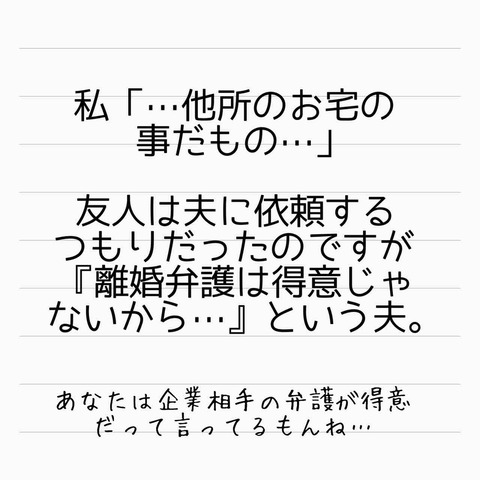 私「…他所のお宅の
事だもの…」
友人は夫に依頼する
つもりだったのですが
『離婚弁護は得意じゃ
ないから…』という夫。
あなたは企業相手の弁護が得意
だって言ってるもんね…